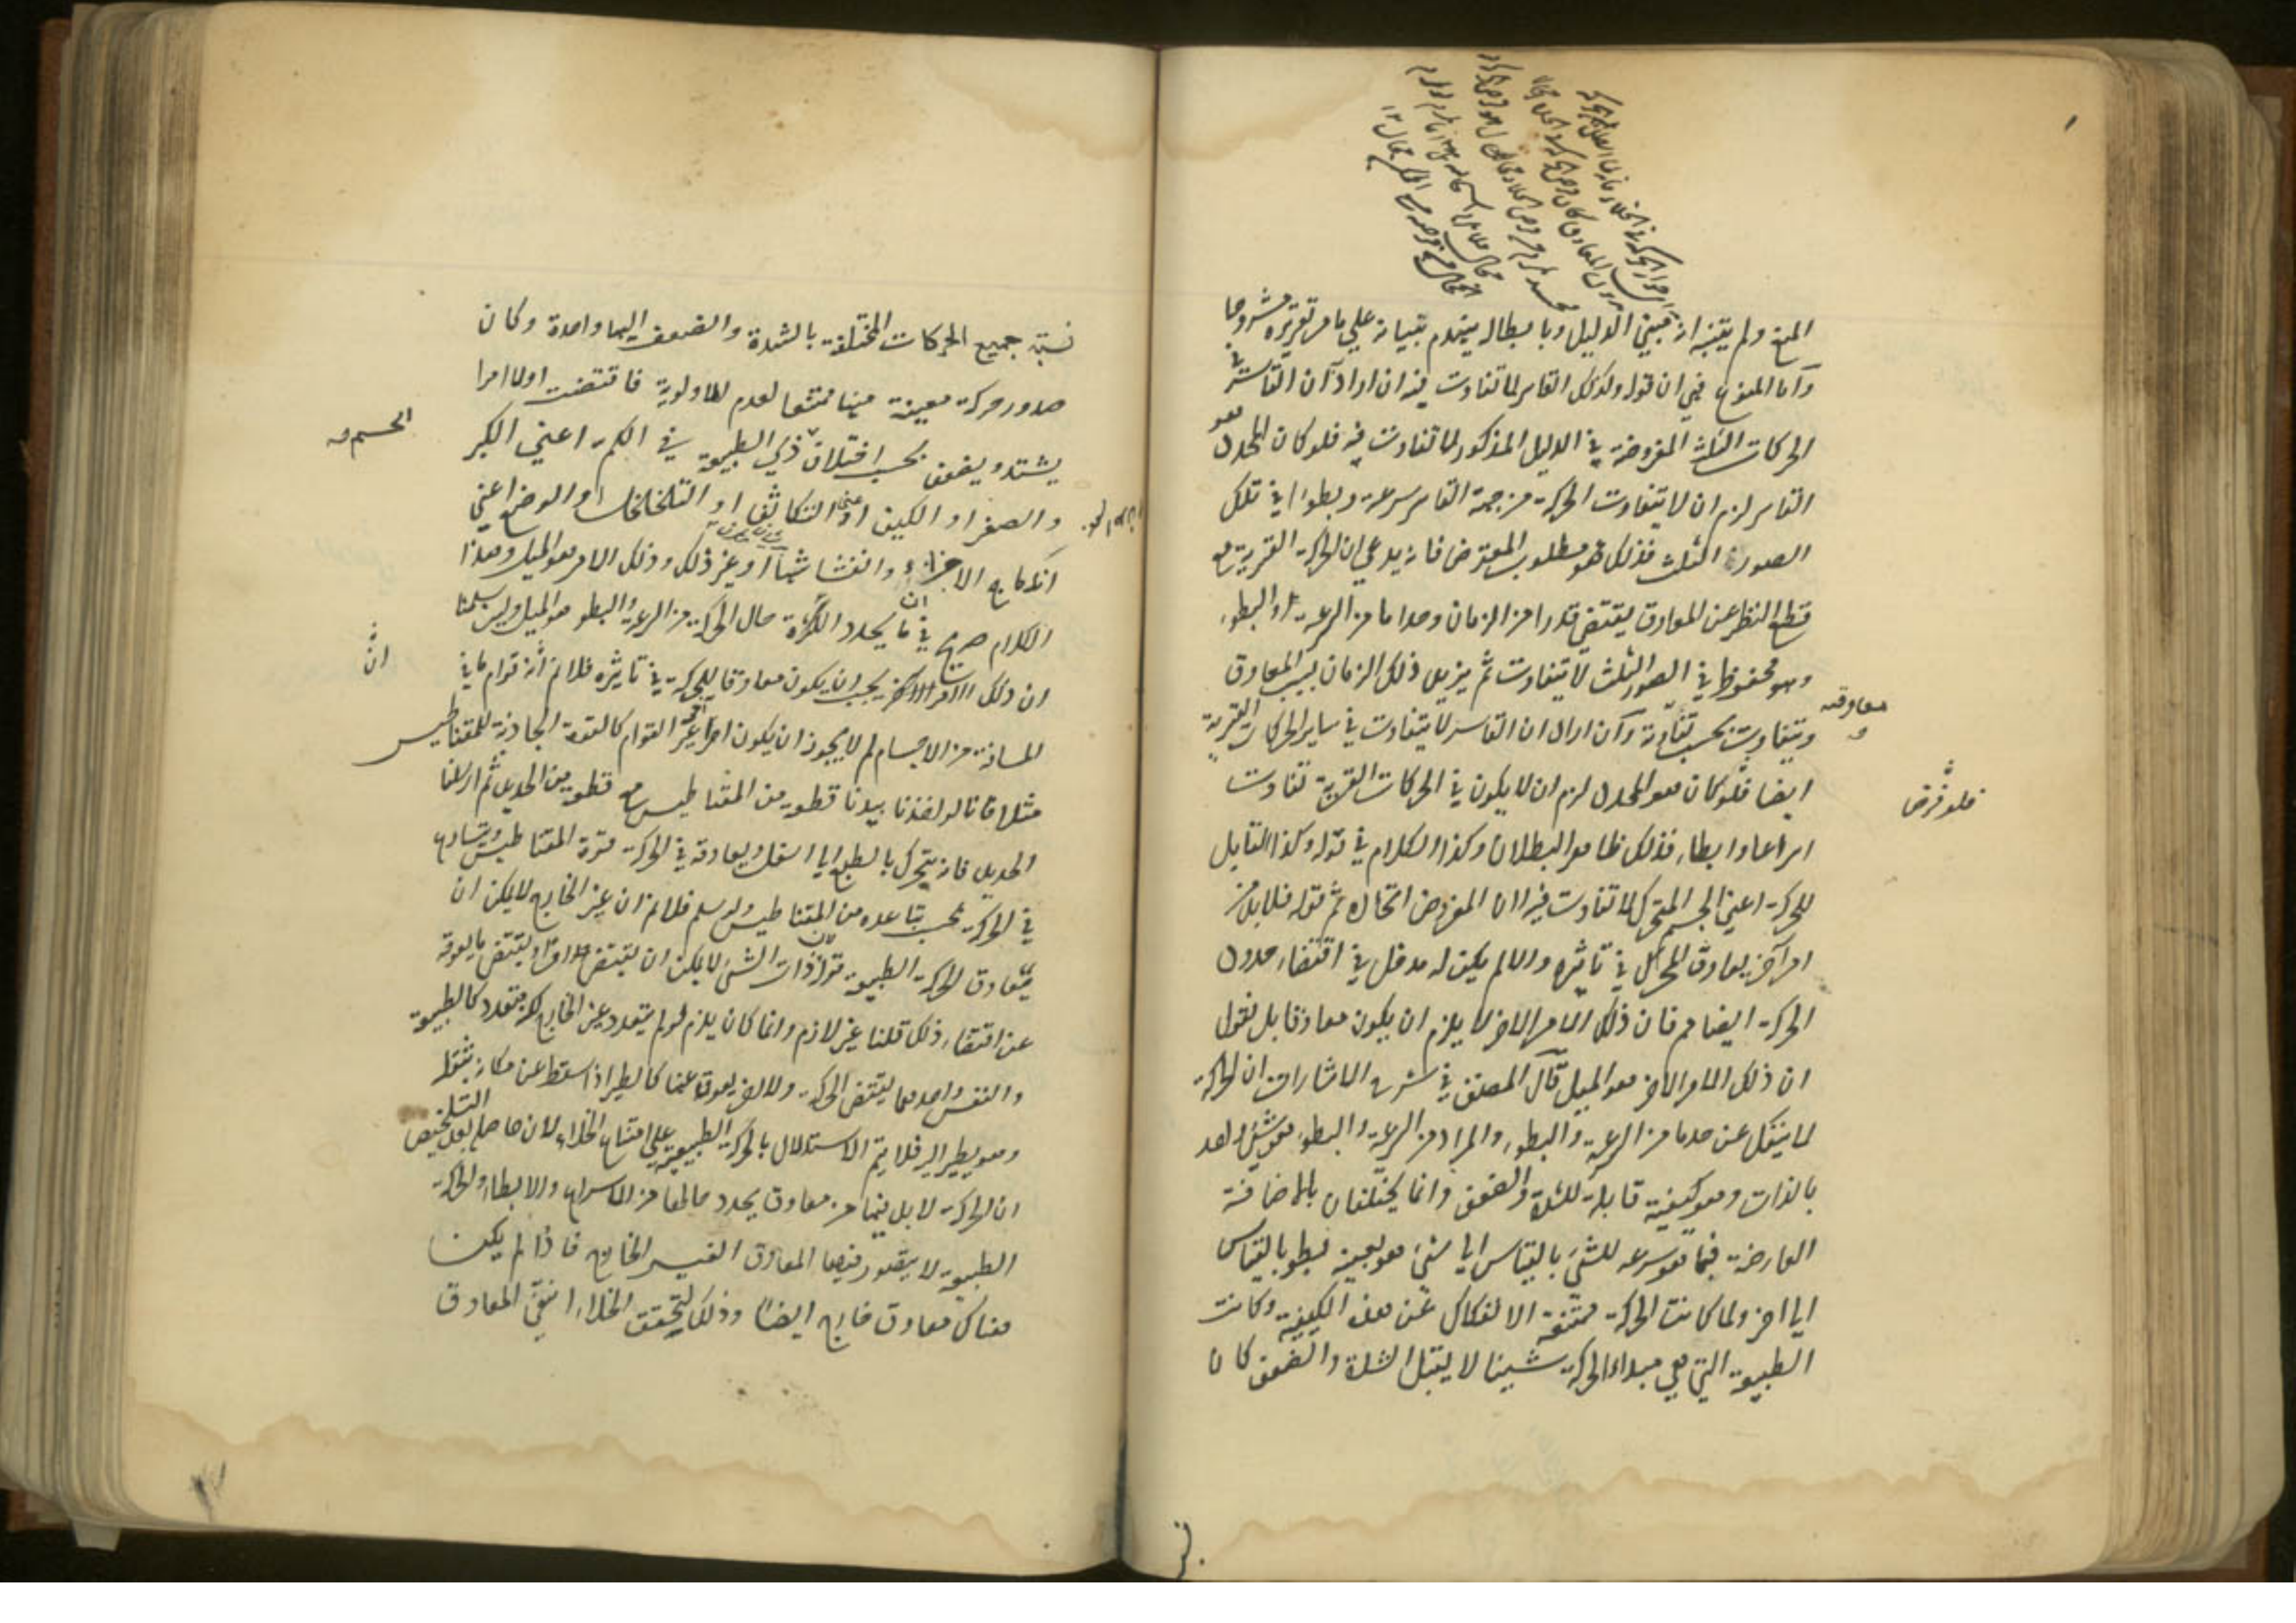 المنع ولم يتبين انه مبني الدليل وبابطاله ينهدم بنيانه علي ما مر تقريره مشروحا
وآما المنوع ففي ان قوله وكذلك القاسر لما تفاوت فيه ان اراد آن القاسر في
الحركات الثلث المفروضة في الدليل المذكور لا تفاوت فيه فلو كان المحدد هو
القاسر لزم ان لا يتفاوت الحركة من جهة القاسر سرعة وبطوءا في تلك
الصورة الثلث فذلك هو مطلوب المعترض فانه يدعي ان الحركة القسرية مع
قطع النظر عن المعاوق يقتضي قدرا من الزمان وحدا ما من السرعة والبطوء
وهو محفوظ في الصور الثلث لا يتفاوت ثم يزيد ذلك الزمان بسبب المعاوق
ويتفاوت بحسب تفاوته وآن اراد ان القاسر لا يتفاوت في ساير الحركات القسرية
معاوقه
ايضا فلو كان هو المحدد لزم ان لا يكون في الحركات القسرية تفاوت
فلو فرض
اسراعا وابطاء فذلك ظاهر البطلان وكذا الكلام في قوله وكذا القابل
للحركة اعني الجسم المتحرك لا تفاوت فيه لان المفروض اتحاده ثم قوله فلا بد من
امر آخر يعاوق المحرك في تاثيره والا لم يكن له مدخل في اقتضاء حدود
الحركة ايضا مم فان ذلك الامر الاخر لا يلزم ان يكون معاوقا بل نقول
ان ذلك الامر الاخر هو الميل قال المصنف في شرح الاشارات ان الحركة
لا ينفك عن حد ما من السرعة والبطوء والمراد من السرعة والبطوء هو شئ واحد
بالذات وهو كيفية قابلة للشدة والضعف وانما يختلفان بالاضافة
العارضة فما هو سرعة للشئ بالقياس الي شئ هو بعينه بطو بالقياس
الي اخر ولما كانت الحركة ممتنعة الانفكاك عن هذه الكيفية وكانت
الطبيعة التي هي مبداء الحركة شيئا لا يقبل الشدة والضعف كان
نسبة جميع الحركات المختلفة بالشدة والضعف اليها واحدة وكان
صدور حركة معينة منها ممتنعا لعدم الاولوية فاقتضت اولا امرا
يشتد ويضعف بحسب اختلاف ذي الطبيعة في الكم اعني الكبر
الجسم
والصغر او الكيف اعني التكاثف او التخلخل او الوضع اعني
اندماج الاجزاء وانفشاشها او غير ذلك وذلك الامر هو الميل وهذا
الكلام صريح في ان ما يحدد الحركة حال الحركة من السرعة والبطو هو الميل ولئن سلمنا
ان ذلك الامر الاخر يجب ان يكون معاوقا للحركة في تاثيره فلا نم انه قوام ما في
ان
المسافة من الاجسام لم لا يجوز ان يكون امرا غير القوام كالقوة الجاذبة للمقناطيس
مثلا فانا لو اخذنا بيدنا قطعة من المقناطيس مع قطعة من الحديد ثم ارسلنا
الحديد فانه يتحرك بالطبع الي اسفل ويعاوقه في الحركة قوة المقناطيس ويتسارع
في الحركة بحسب تباعده من المقناطيس ولو سلم فلا نم ان غير الخارج لا يمكن ان
يعاوق الحركة الطبيعية قوله ذات الشئ لا يمكن ان يقتضي امرا ويقتضي ما يعوقه
عن اقتضاء ذلك قلنا غير لازم وانما كان يلزم لو لم يتعدد غير الخارج لكنه يتعدد كالطبيعة
والنفس واحدهما يقتضي الحركة والاخر يعوق عنها كالطير اذا سقط عن مكان بثقله
وهو يطير اليه فلا يتم الاستدلال بالحركة الطبيعية علي امتناع الخلاء لان حاصله بعد التلخيص
ان الحركة لا بد فيها من معاوق يحدد حالها من الاسراع والابطاء والحركة
الطبيعية لا يتصور فيها المعاوق الغير الخارج فاذا لم يكن
هناك معاوق خارج ايضا وذلك لتحقق الخلاء انتفي المعاوق